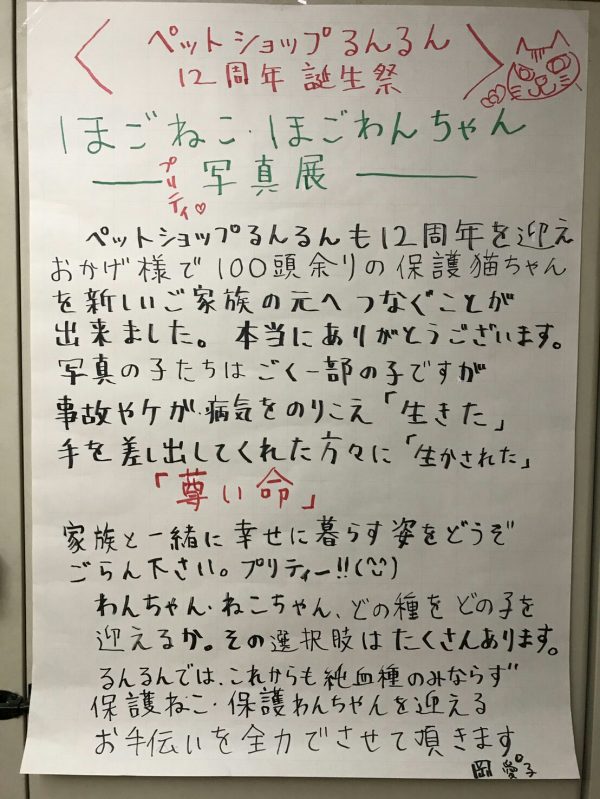 ペットショップるんるん
12周年誕生祭
ほごねこ・ほごわんちゃん
プリティ♡
写真展
ペットショップるんるんも12周年を迎え
おかげ様で100頭余りの保護猫ちゃん
を新しいご家族の元へつなぐことが
出来ました。本当にありがとうございます。
写真の子たちはごく一部の子ですが
事故やケガ、病気をのりこえ「生きた」
手を差し出してくれた方々に「生かされた」
「尊い命」
家族と一緒に幸せに暮らす姿をどうぞ
ごらん下さい。プリティー!!(^^)
わんちゃん・ねこちゃん、どの種をどの子を
迎えるか。その選択肢はたくさんあります。
るんるんでは、これからも純血種のみならず
保護ねこ・保護わんちゃんを迎える
お手伝いを全力でさせて頂きます
岡 愛子